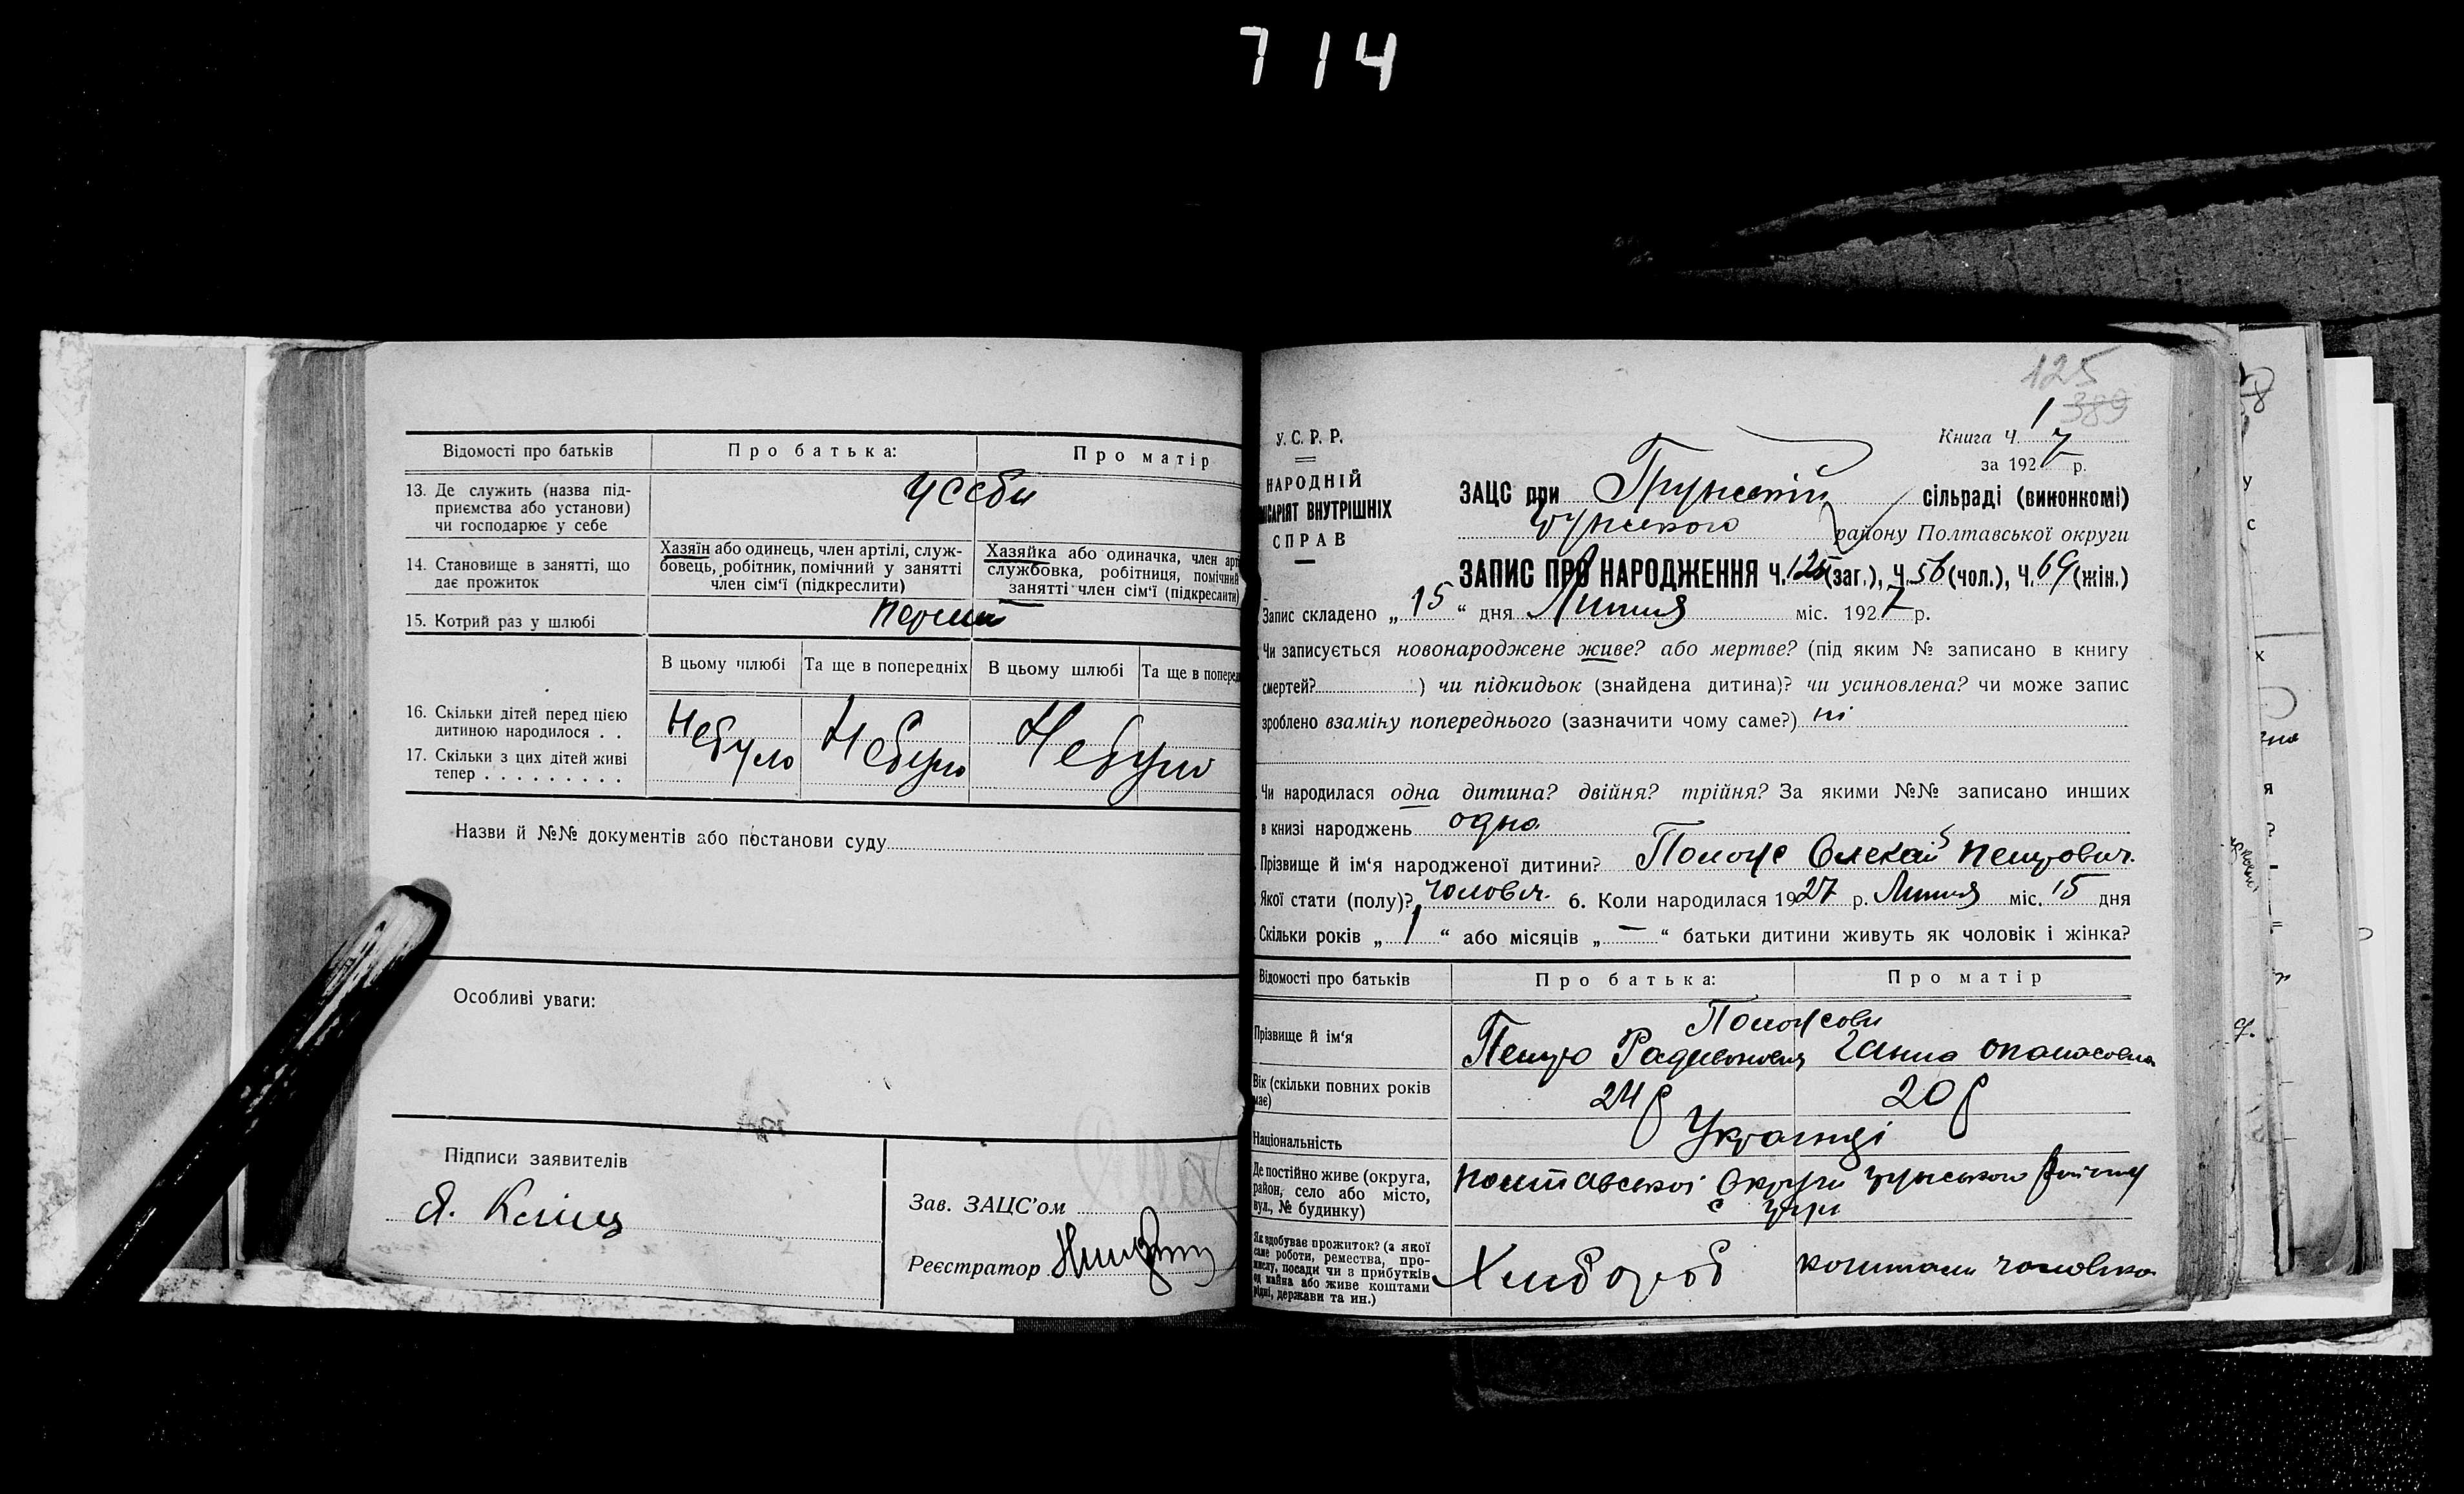 7 14
Відомості про батьків
Про батька:
Про матір
13. Де служить (назва під-
приємства або установи)
чи господарює у себе
у себи
14. Становище в занятті, що
дає прожиток
Хазяїн або одинець, член артілі, служ-
бовець, робітник, помічний у занятті
член сім'ї (підкреслити)
Хазяйка або одиначка, член арт
службовка, робітниця, помічний
занятті член сім'ї (підкреслити)
15. Котрий раз у шлюбі
перший
В цьому шлюбі
Та ще в попередніх
В цьому шлюбі
Та ще в поперед
16. Скільки дітей перед цією
дитиною народилося . .
17. Скільки з цих дітей живі
тепер . . . . . . . . .
Небуло
Небуло
Небуло
Назви й №№ документів або постанови суду
Особливі уваги:
Підписи заявителів
Зав. ЗАЦС'ом
Реєстратор
125
389
У.С.Р.Р.
НАРОДНІЙ
ІСАРІЯТ ВНУТРІШНІХ
СПРАВ
Книга Ч. 1
за 1927 р.
ЗАЦС при Грунській сільраді (виконкомі)
району Полтавської округи
ЗАПИС ПРО НАРОДЖЕННЯ Ч. 125 (заг.), Ч. 56 (чол.), Ч. 69 (жін.)
Запис складено „ 15 “ дня Липня міс. 1927 р.
Чи записується новонароджене живе? або мертве? (під яким № записано в книгу
смертей? ) чи підкидьок (знайдена дитина)? чи усиновлена? чи може запис
зроблено взаміну попереднього (зазначити чому саме?) ні
Чи народилася одна дитина? двійня? трійня? За якими №№ записано инших
в книзі народжень одна
Прізвище й ім'я народженої дитини? Петрович
Якої стати (полу)? чоловіч. 6. Коли народилася 1927 р. Липня міс. 15 дня
Скільки років „ 1 “ або місяців „ — “ батьки дитини живуть як чоловік і жінка?
Відомості про батьків
Про батька:
Про матір
Прізвище й ім'я
Петро Радивонович
Ганна Опанасовна
Вік (скільки повних років
має)
24 р
20 р
Національність
Українці
Де постійно живе (округа,
район, село або місто,
вул., № будинку)
Полтавської Округи
Як здобуває прожиток? (з якої
саме роботи, ремества, про-
мислу, посади чи з прибутків
од майна або живе коштами
рідні, держави та ин.)
Хлибороб
коштами чоловіка